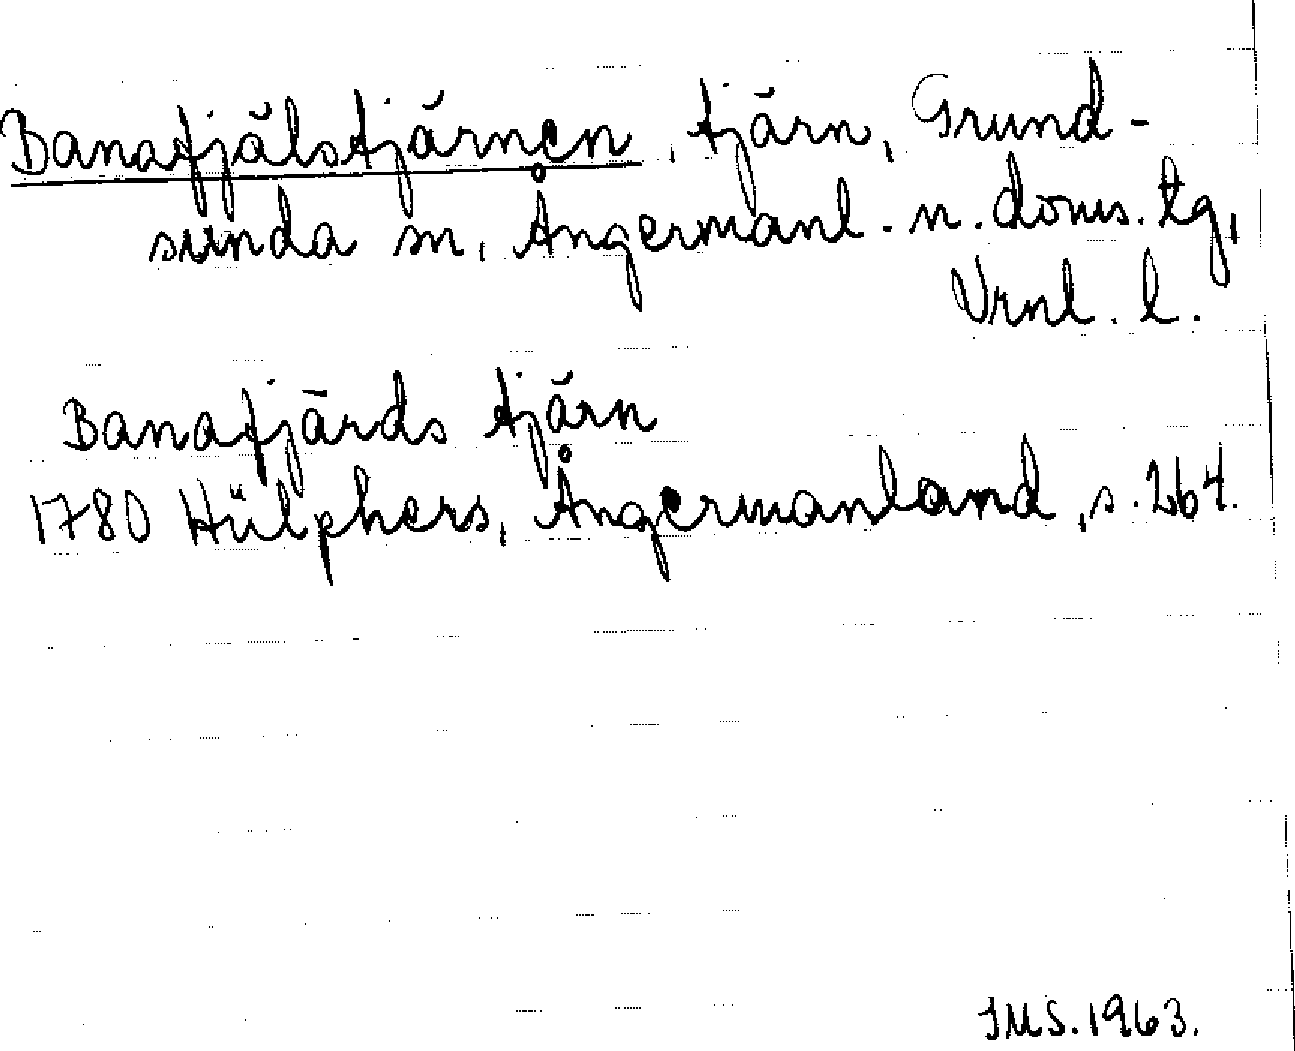 Banafjälstjärnen, tjärn, Grund-
sunda sn, Ångermanl. n. doms. tg,
Vrnl. l.
Banafjärds tjärn
1780 Hülphers, Ångermanland, s. 264.
JMS. 1963.